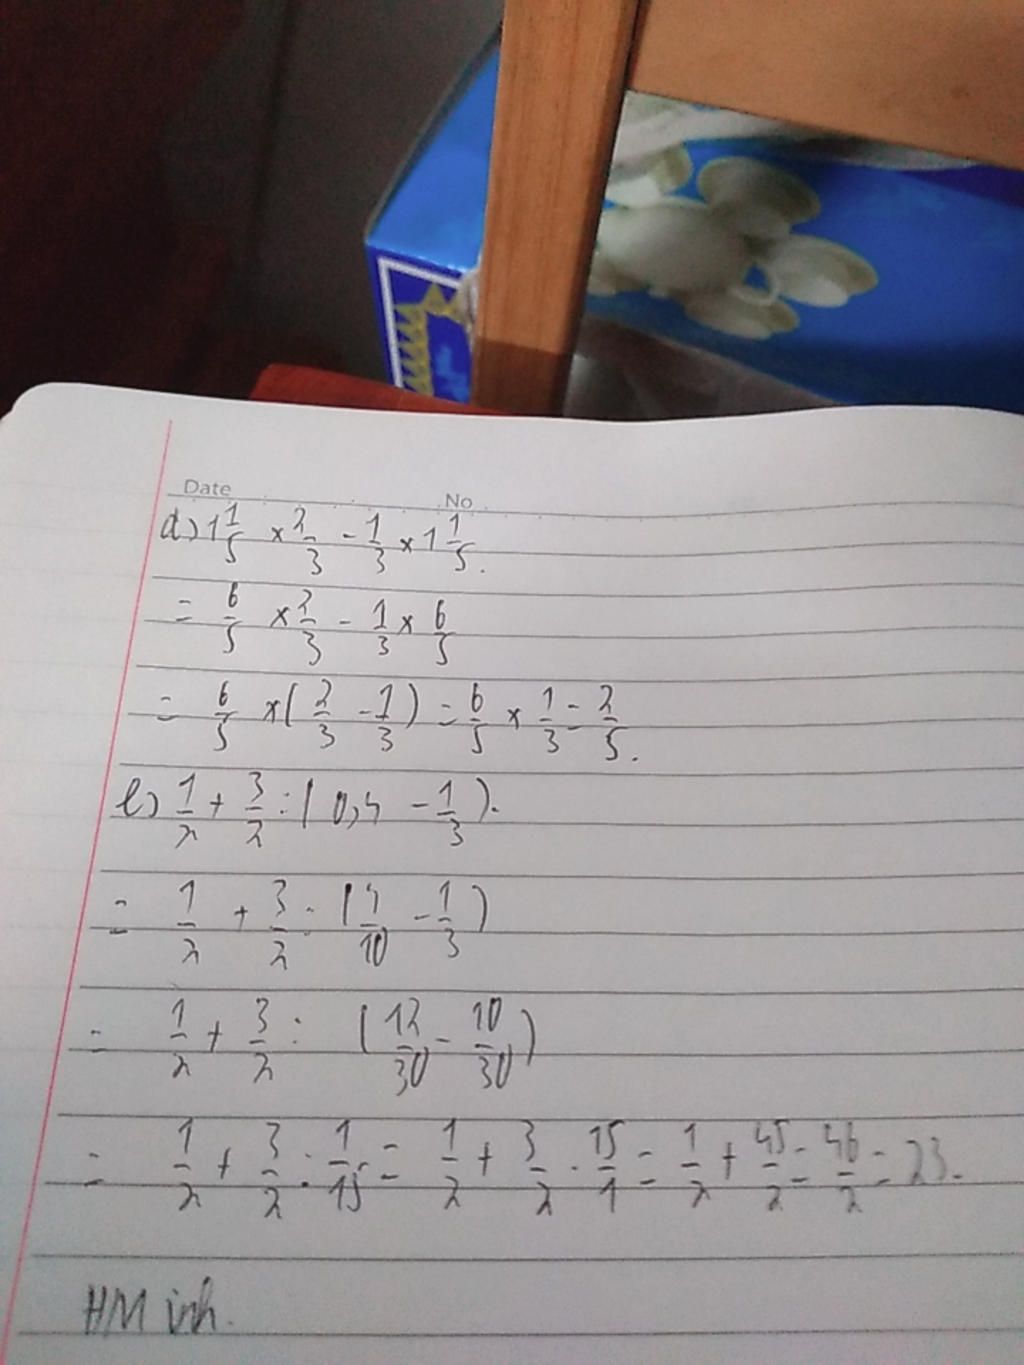 Date No
d) 1 1/5 × 2/3 - 1/3 × 1 1/5.
= 6/5 × 2/3 - 1/3 × 6/5
= 6/5 × (2/3 - 1/3) = 6/5 × 1/3 = 2/5.
e) 1/2 + 3/2 : (0,4 - 1/3).
= 1/2 + 3/2 : (4/10 - 1/3)
= 1/2 + 3/2 : (12/30 - 10/30)
= 1/2 + 3/2 : 1/15 = 1/2 + 3/2 . 15/1 = 1/2 + 45/2 = 46/2 = 23.
HMinh.